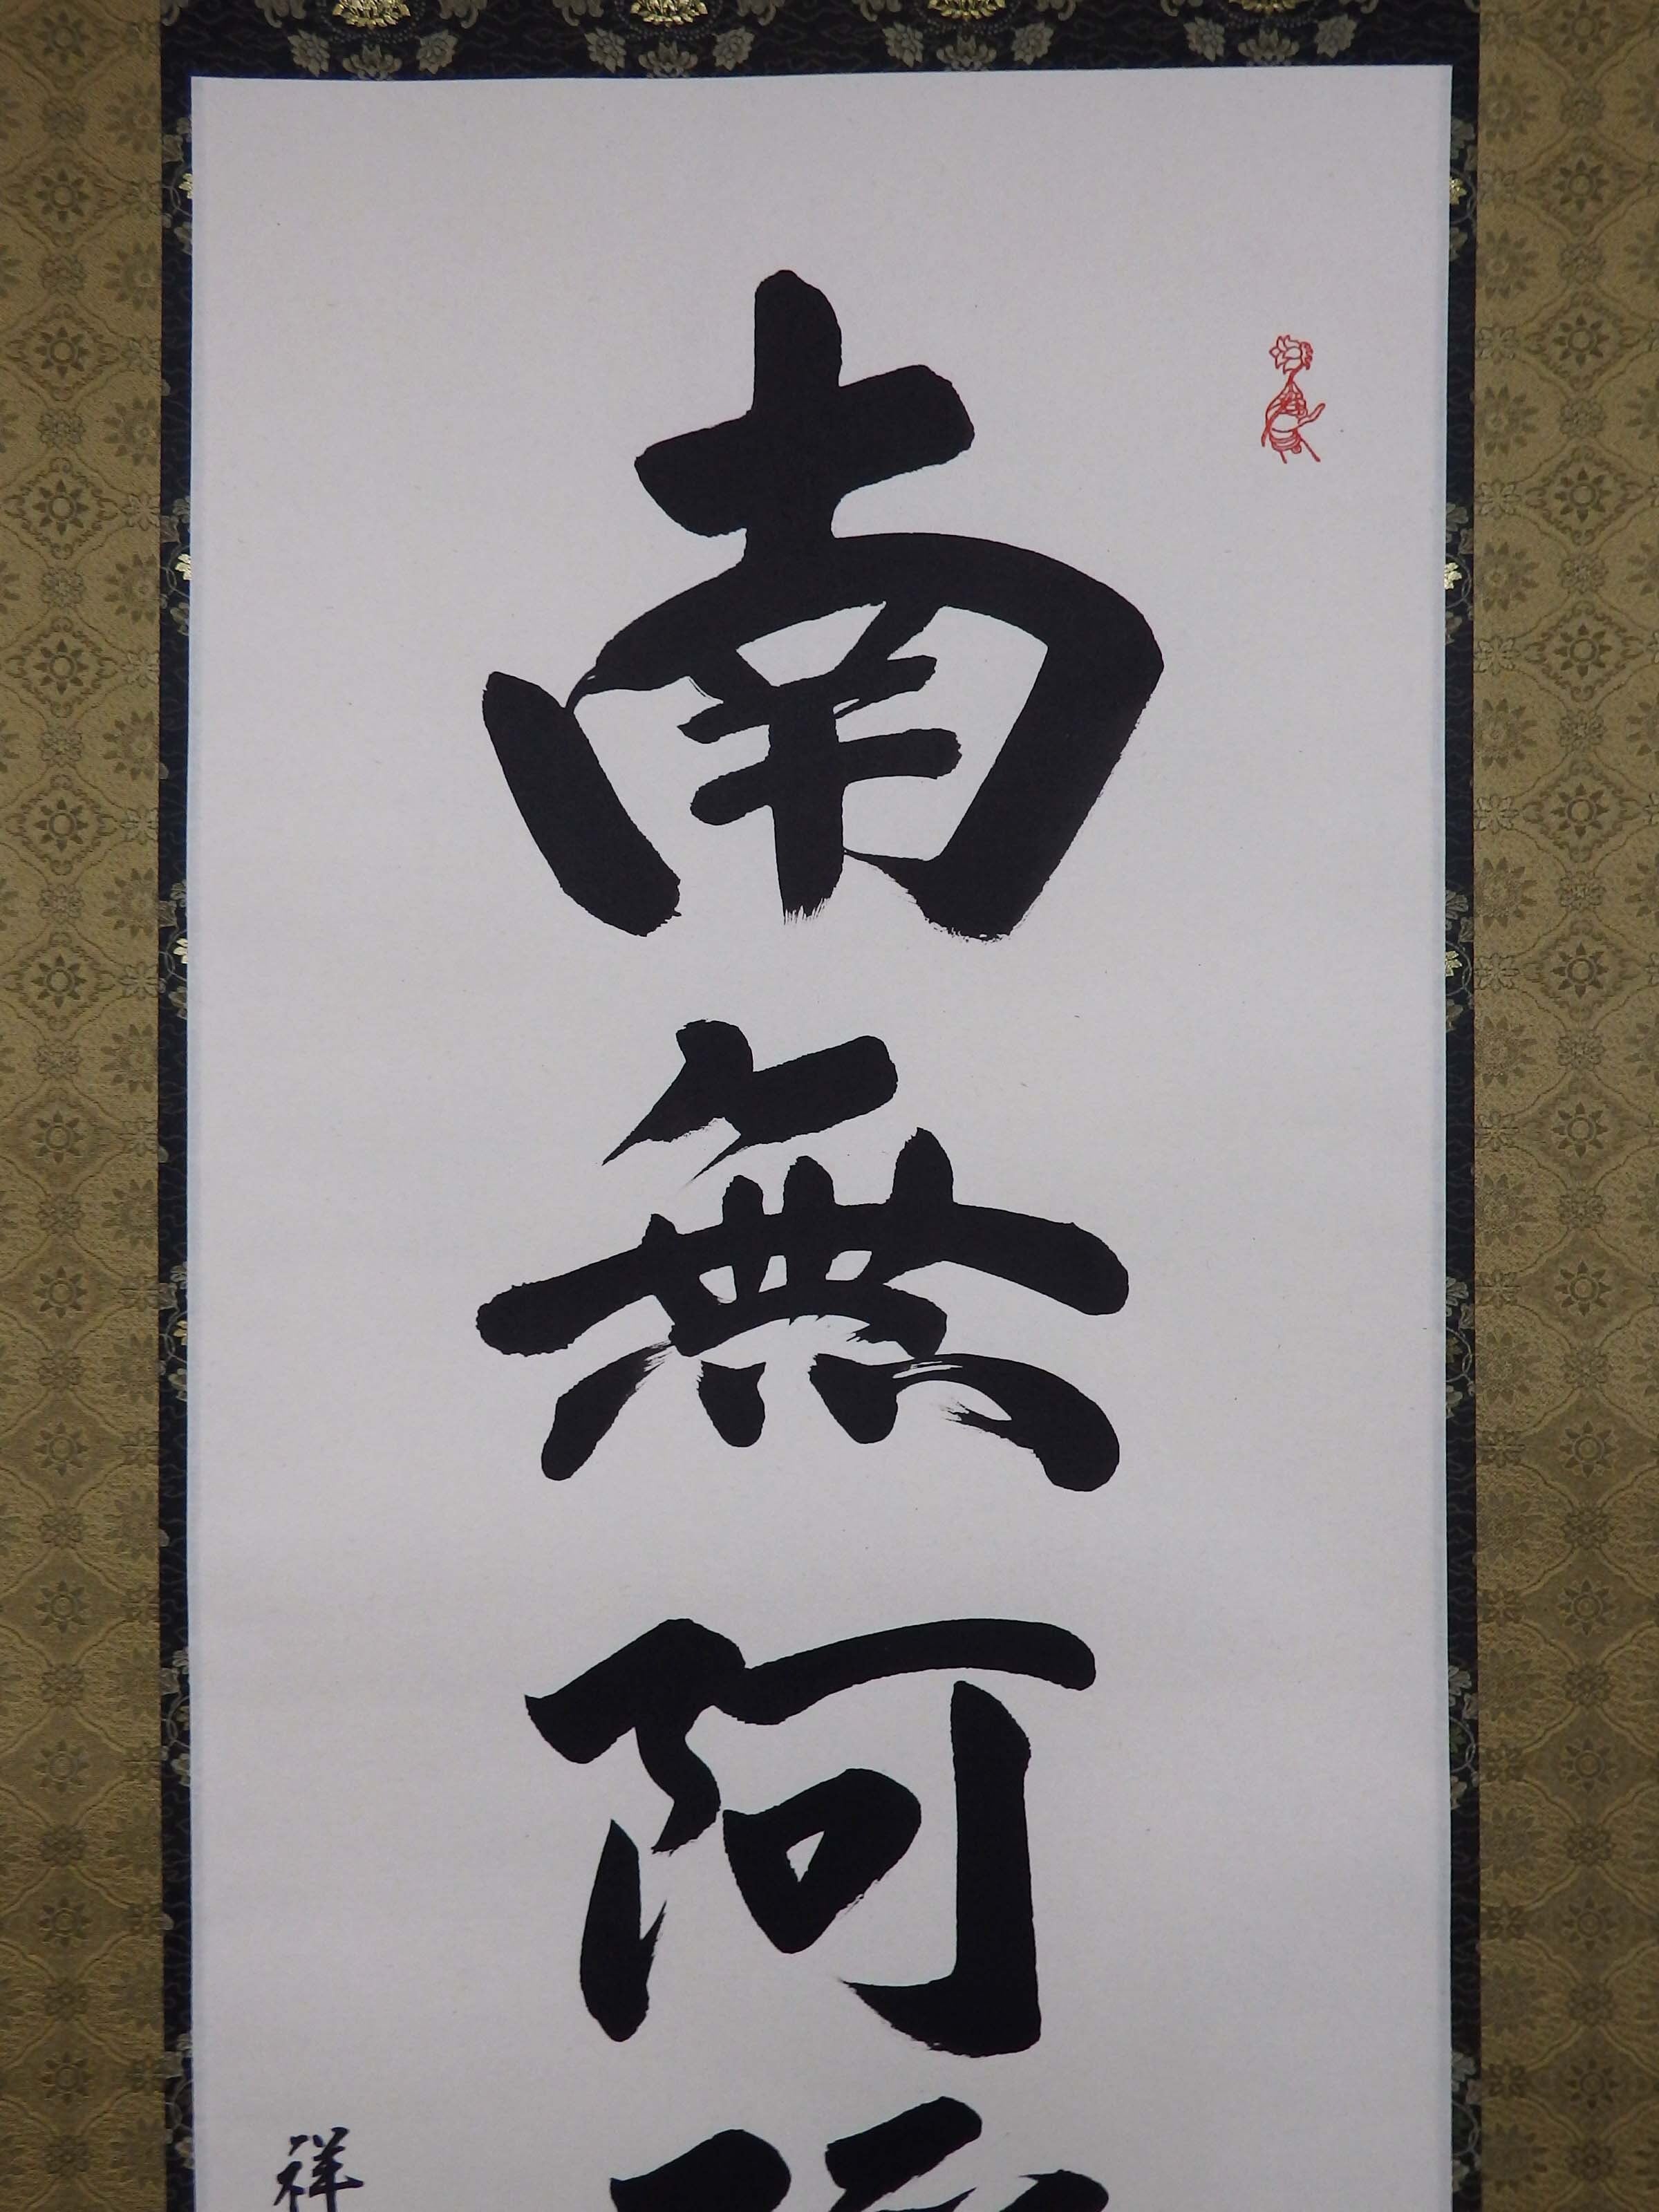 南無阿
祥